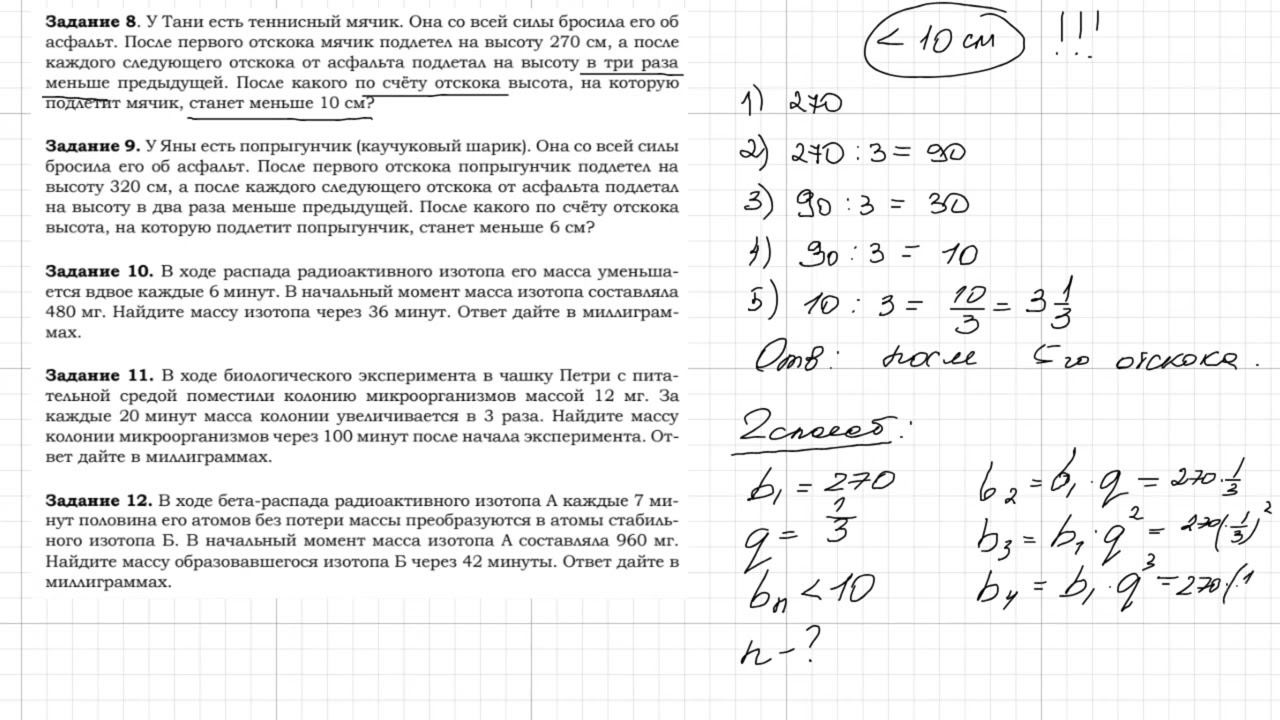 Задание 8. У Тани есть теннисный мячик. Она со всей силы бросила его об
асфальт. После первого отскока мячик подлетел на высоту 270 см, а после
каждого следующего отскока от асфальта подлетал на высоту в три раза
меньше предыдущей. После какого по счёту отскока высота, на которую
подлетит мячик, станет меньше 10 см?
Задание 9. У Яны есть попрыгунчик (каучуковый шарик). Она со всей силы
бросила его об асфальт. После первого отскока попрыгунчик подлетел на
высоту 320 см, а после каждого следующего отскока от асфальта подлетал
на высоту в два раза меньше предыдущей. После какого по счёту отскока
высота, на которую подлетит попрыгунчик, станет меньше 6 см?
Задание 10. В ходе распада радиоактивного изотопа его масса уменьша-
ется вдвое каждые 6 минут. В начальный момент масса изотопа составляла
480 мг. Найдите массу изотопа через 36 минут. Ответ дайте в миллиграм-
мах.
Задание 11. В ходе биологического эксперимента в чашку Петри с пита-
тельной средой поместили колонию микроорганизмов массой 12 мг. За
каждые 20 минут масса колонии увеличивается в 3 раза. Найдите массу
колонии микроорганизмов через 100 минут после начала эксперимента. От-
вет дайте в миллиграммах.
Задание 12. В ходе бета-распада радиоактивного изотопа А каждые 7 ми-
нут половина его атомов без потери массы преобразуются в атомы стабиль-
ного изотопа Б. В начальный момент масса изотопа А составляла 960 мг.
Найдите массу образовавшегося изотопа Б через 42 минуты. Ответ дайте в
миллиграммах.
< 10 см !!!
1) 270
2) 270 : 3 = 90
3) 90 : 3 = 30
4) 30 : 3 = 10
5) 10 : 3 = 10/3 = 3 1/3
Отв: после 5го отскока.
2 способ:
b₁ = 270
q = 1/3
bₙ < 10
n - ?
b₂ = b₁ · q = 270 · 1/3
b₃ = b₁ · q² = 270(·1/3)²
b₄ = b₁ · q³ = 270·(1